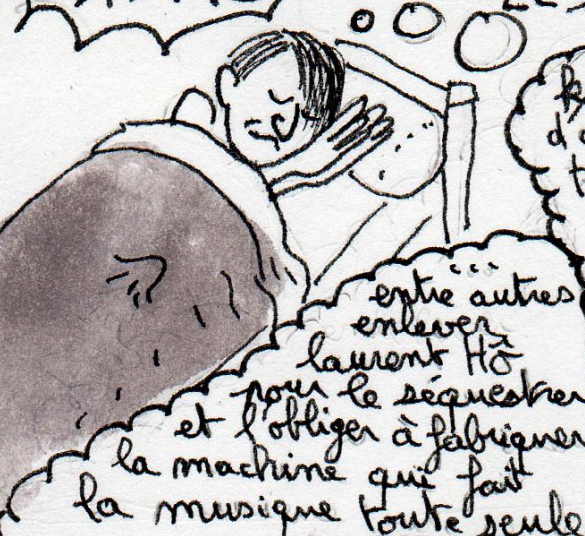 ...
entre autres
enlever
laurent Hô
pour le séquestrer
et l'obliger à fabriquer
la machine qui fait
la musique toute seule